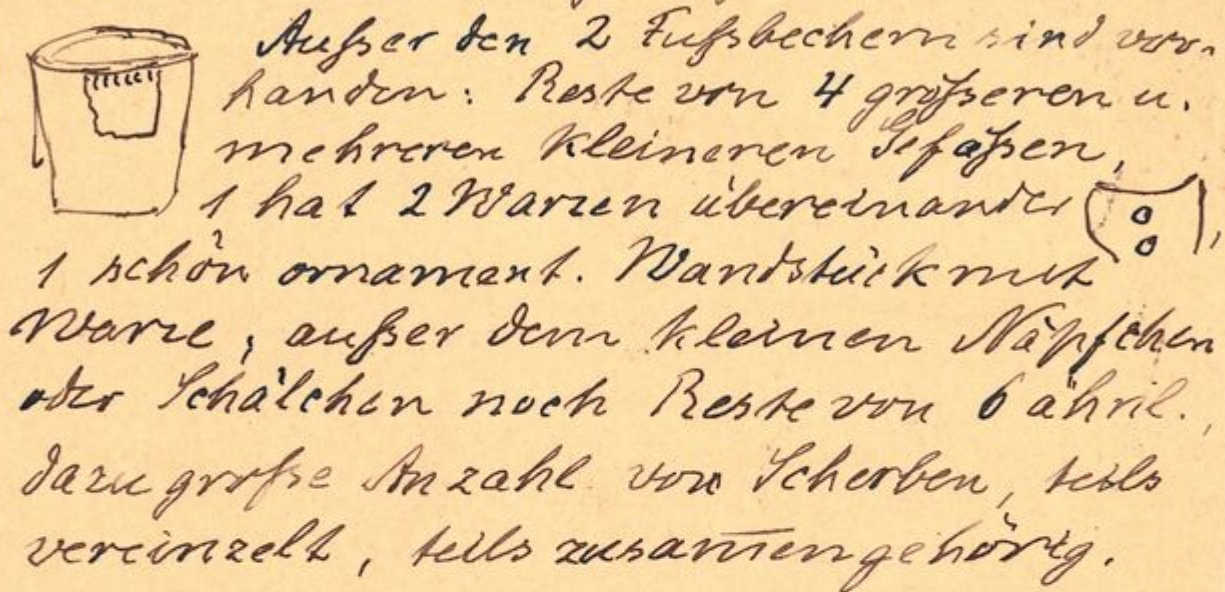 Außer den 2 Fußbechern sind vor-
handen: Reste von 4 größeren u.
mehreren kleineren Gefäßen,
1 hat 2 Warzen übereinander,
1 schön ornament. Wandstück mit
Warze, außer dem kleinen Näpfchen
oder Schälchen noch Reste von 6 ähnl.,
dazu große Anzahl von Scherben, teils
vereinzelt, teils zusam̅engehörig.